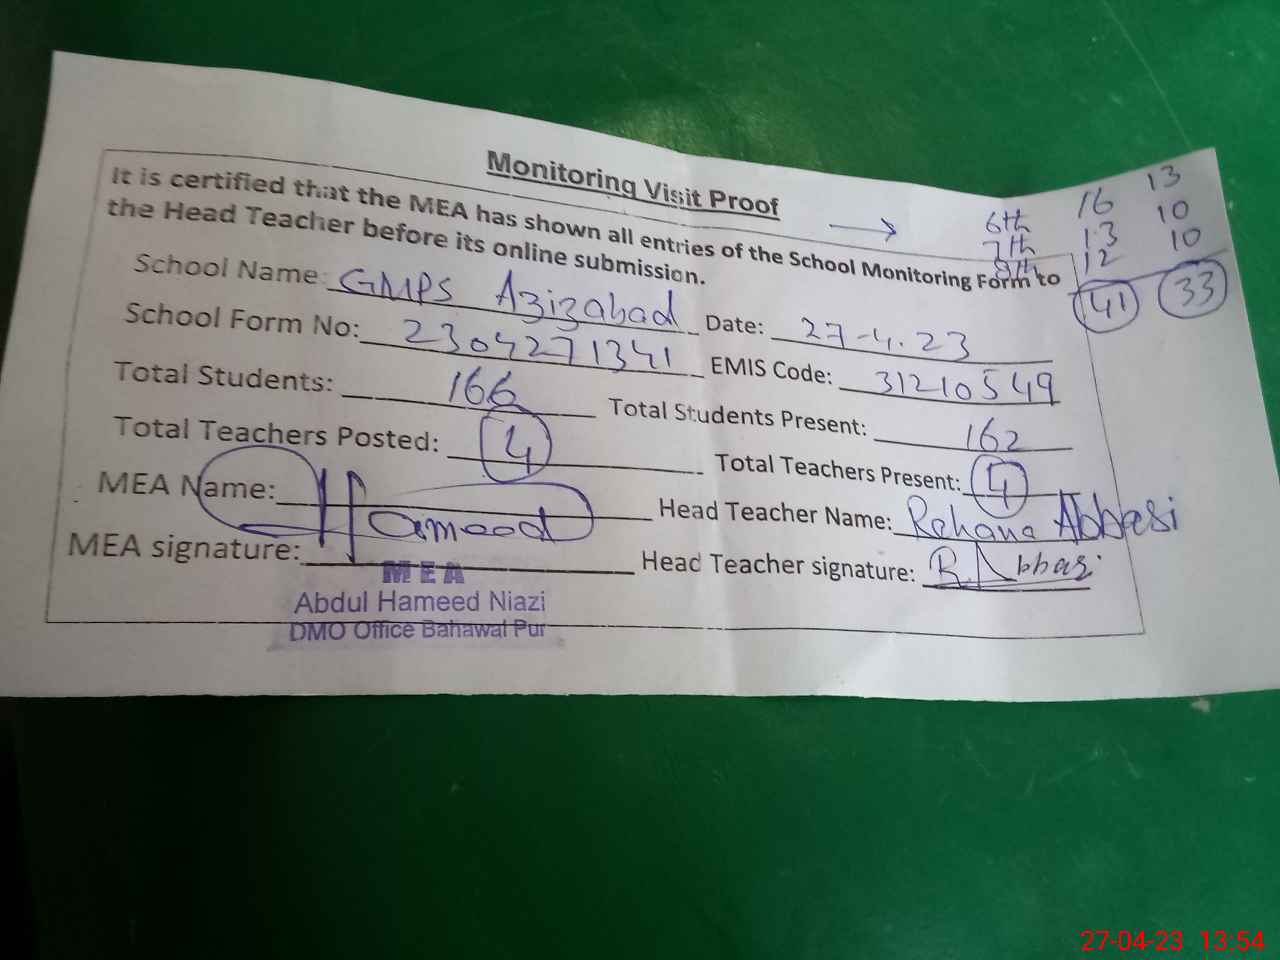 Monitoring Visit Proof
→ 6th 16 13
7th 13 10
8th 12 10
41 33
It is certified that the MEA has shown all entries of the School Monitoring Form to
the Head Teacher before its online submission.
School Name: GMPS Azizabad Date: 27-4.23
School Form No: 2304271341 EMIS Code: 31210549
Total Students: 166 Total Students Present: 162
Total Teachers Posted: 4 Total Teachers Present: 4
MEA Name: Hameed Head Teacher Name: Rehana Abbasi
MEA signature: Head Teacher signature: R.Abbasi
MEA
Abdul Hameed Niazi
DMO Office Bahawal Pur
27-04-23 13:54